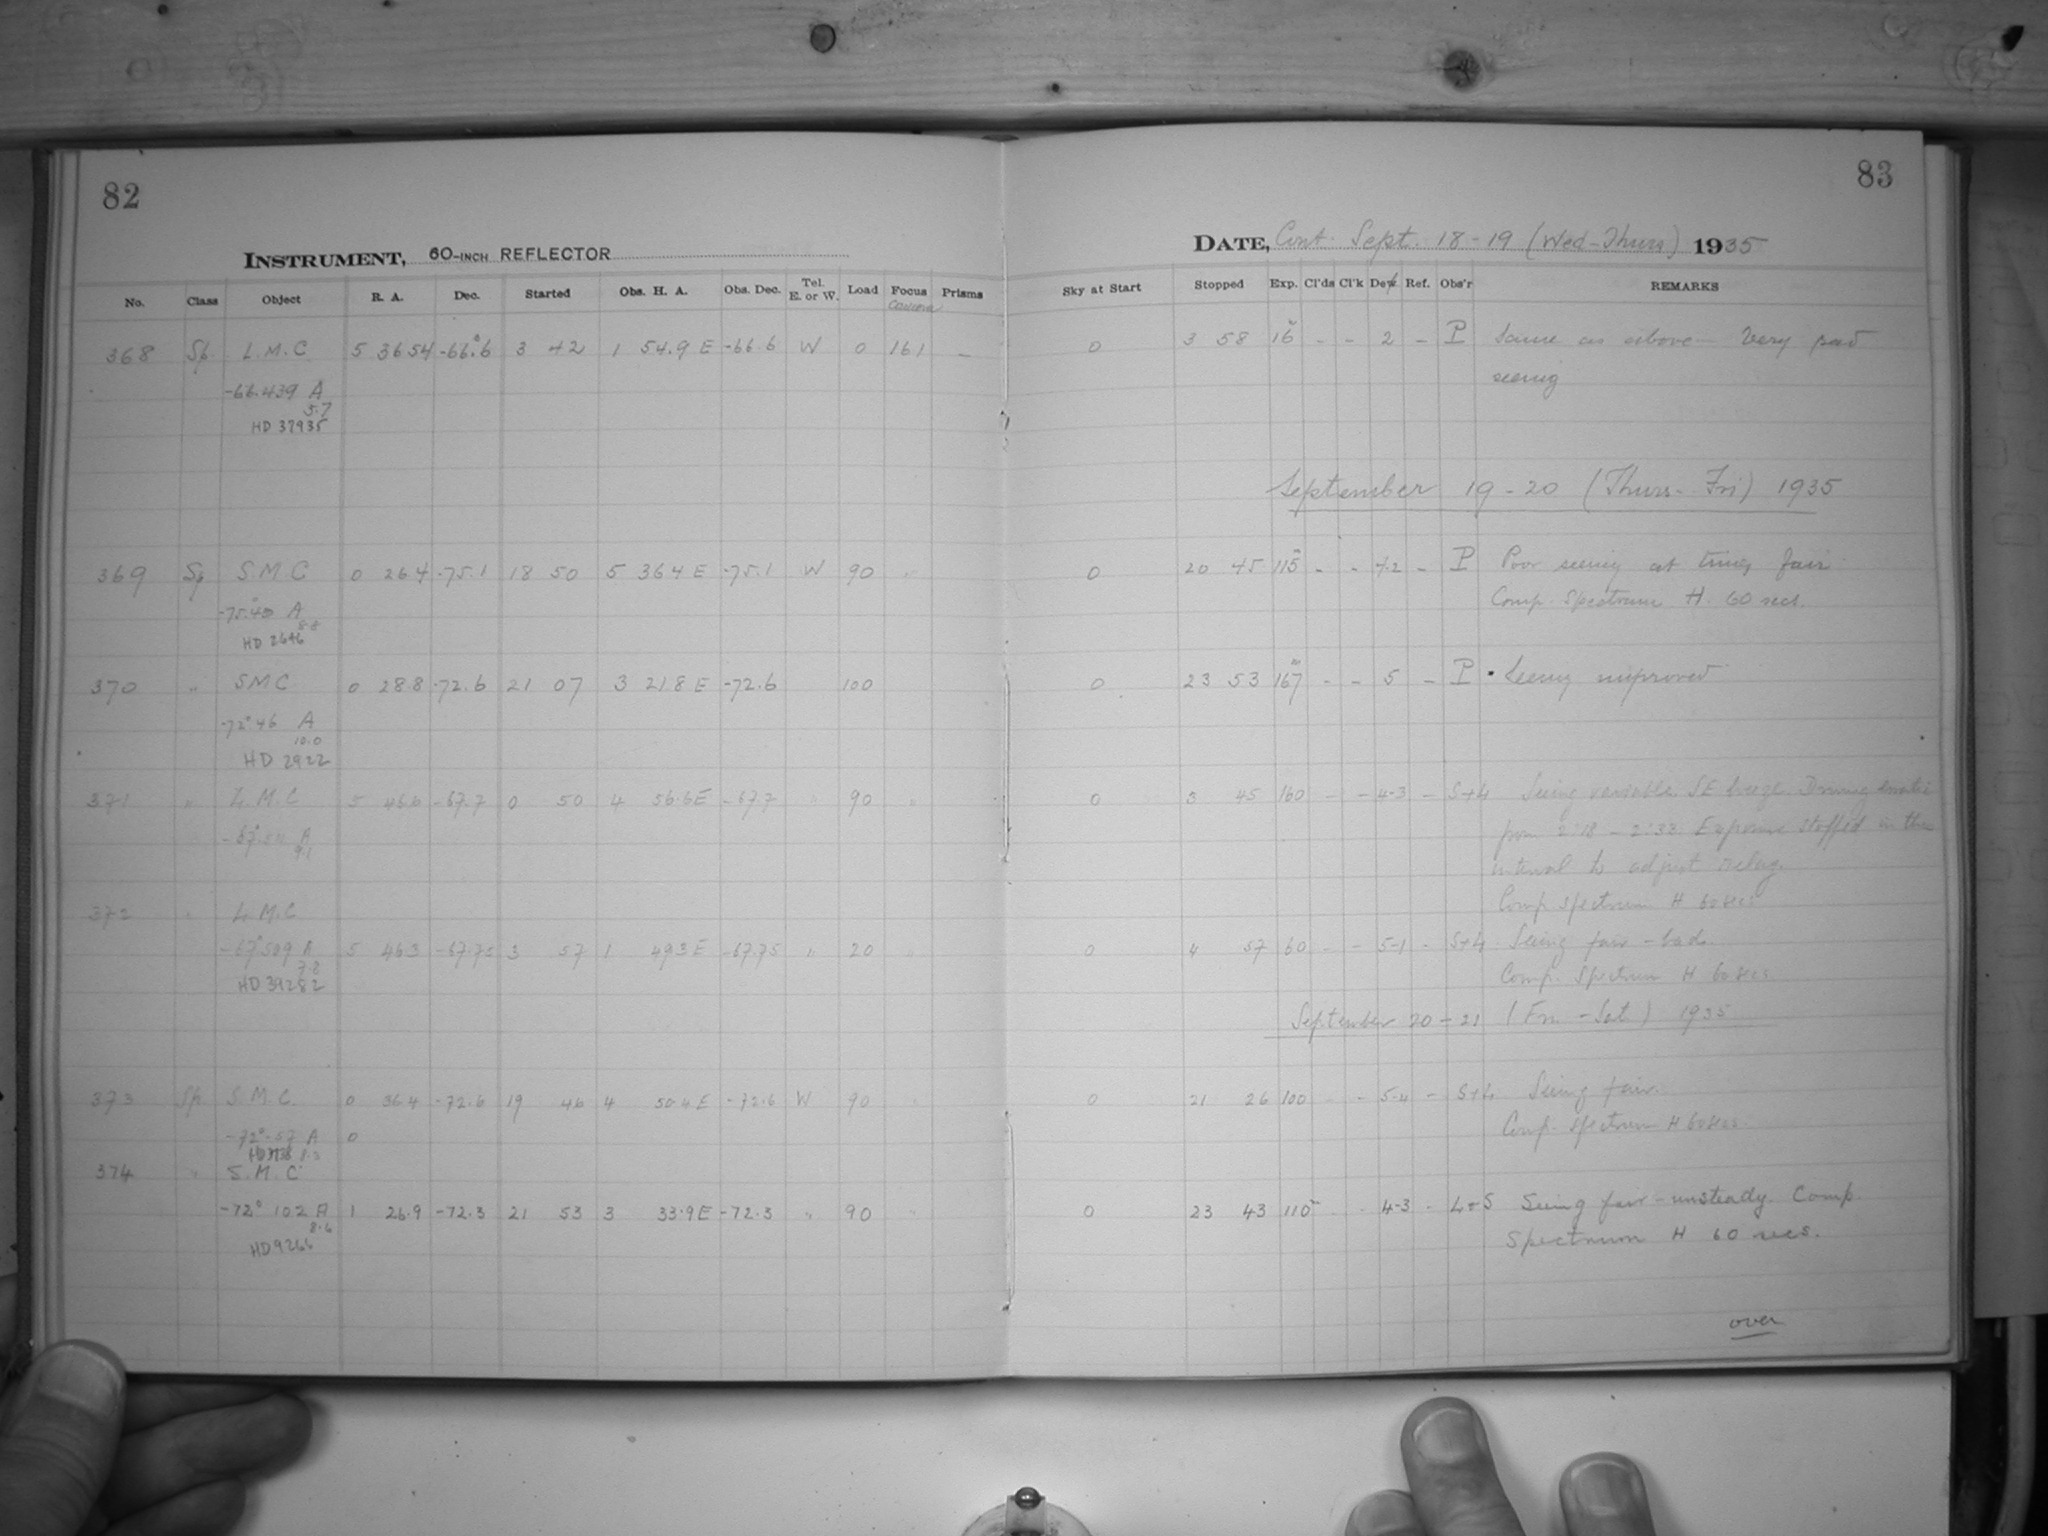 82
83
INSTRUMENT, 60-INCH REFLECTOR
DATE, Cont. Sept. 18-19 (Wed-Thurs) 1935
No. Class Object R. A. Dec. Started Obs. H. A. Obs. Dec. Tel. E. or W. Load Focus Prisms Sky at Start Stopped Exp. Cl'ds Cl'k Dew. Ref. Obs'r REMARKS
368 Sp. L.M.C. 5 36 54 -66.°6 3 42 1 54.9 E -66.6 W 0 161 - 0 3 58 16 - - 2 - P Same as above - Very poor
-66.439 A seeing
5.7
HD 37935
September 19-20 (Thurs-Fri) 1935
369 Sp S.M.C 0 26.4 -75.1 18 50 5 36.4 E -75.1 W 90 " 0 20 45 115 - - - P Poor seeing at times fair
-75.40 A Comp. Spectrum H. 60 secs.
8.8
HD 2646
370 " SMC 0 28.8 -72.6 21 07 3 21.8 E -72.6 100 0 23 53 167 - - 5 - P Seeing improved
-72°46 A
10.0
HD 2922
371 " L.M.C 5 46.6 -67.7 0 50 4 56.6 E -67.7 " 90 " 0 3 45 160 - - 4-3 - S+L Seeing variable. SE breeze. Driving erratic
A from 2:18 - 2:33. Exposure stopped in the
9.1 interval to adjust relay.
Comp spectrum H 60 secs
372 " L.M.C
-67°509 A 5 46.3 -67.75 3 57 1 49.3 E -67.75 " 20 " 0 4 57 60 - - 5-1 - S+L Seeing fair - bad.
7.8
HD 39282 Comp. Spectrum H 60 secs
September 20-21 (Fri - Sat.) 1935
373 Sp. S.M.C. 0 36.4 -72.6 19 46 4 50.4 E -72.6 W 90 " 0 21 26 100 - - 5-4 - S+L Seeing fair.
-72°.57 A 0 Comp. Spectrum H 60 secs.
374 " S.M.C
-72° 102 A 1 26.9 -72.3 21 53 3 33.9 E -72.3 " 90 " 0 23 43 110 - - 4-3 - L+S Seeing fair - unsteady. Comp.
8.6
HD 9266 Spectrum H 60 secs.
over